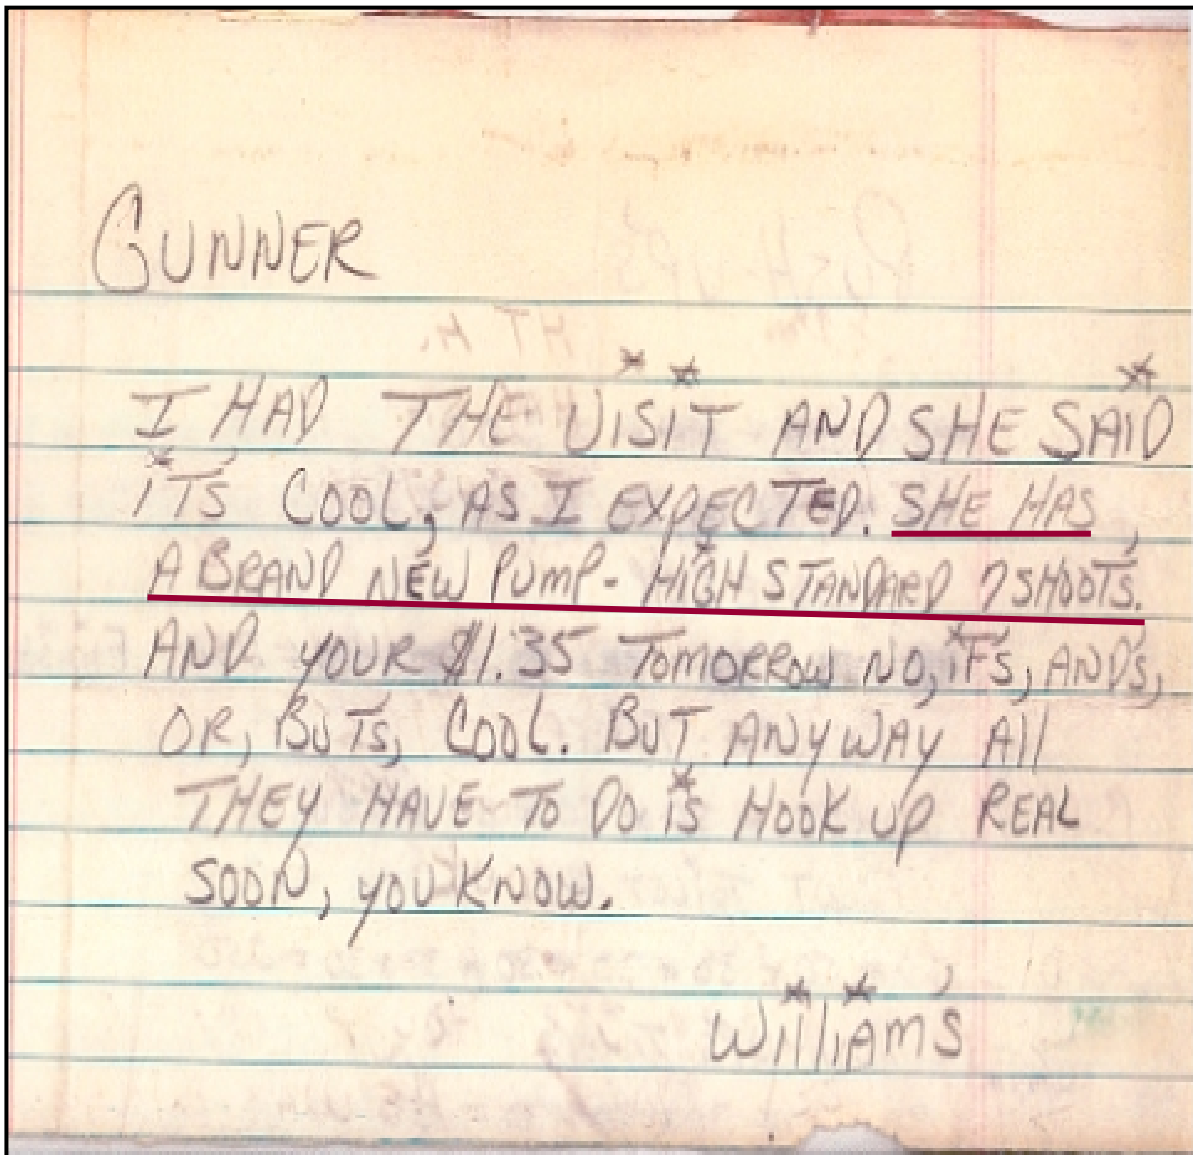 GUNNER
I HAD THE ViSiT AND SHE SAiD
iT'S COOL, AS I EXPECTED. SHE HAS
A BRAND NEW PUMP - HiGH STANDARD 7 SHOOTS.
AND YOUR $1.35 TOMORROW NO, iF'S, AND'S,
OR, BUT'S, COOL. BUT ANYWAY All
THEY HAVE TO DO iS HOOK UP REAL
SOON, YOU KNOW.
WilliAM'S